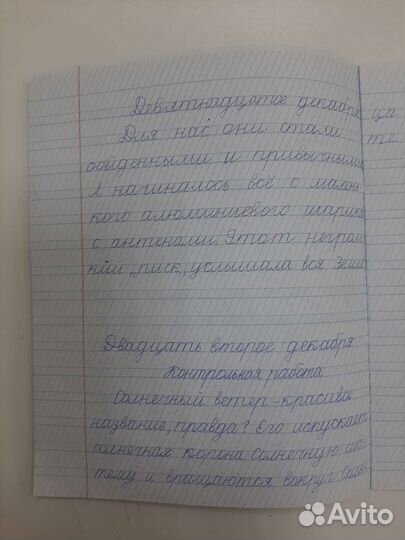 Девятнадцатое декабря
Для нас они стали
обыденными и привычными.
А начиналось всё с малень-
кого алюминиевого шарика
с антенами. Этот негром-
кий „писк„ услышала вся Земля
Двадцать второе декабря
Контрольная работа
Солнечный ветер-красивое
название, правда? Его испускает
солнечная корона. Солнечную сис-
тему и вращаются вокруг Солн-
ца
те.
Avito